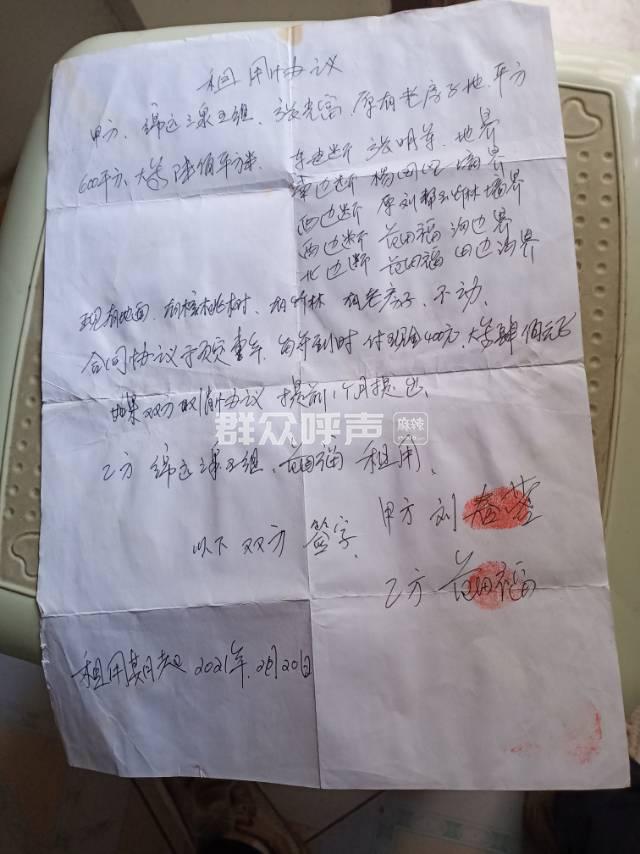 租用协议
甲方、绵远三泉五组、张光富、原有老房子地、平方
600平方、大写陆佰平方米、
东边断 张明芳、地界
南边断 杨国田 墙界
西边断 原刘 竹林墙界
西边断 范田福 沟边界
北边断 范田福 田边沟界
现有地面、有核桃树、有竹林 有老房子、不动、
合同协议于 、每年到时 付现金400元、大写肆佰元
如果双方取消协议 提前1个月提出、
乙方 绵远三泉五组、范田福 租用、
以下双方 签字、
甲方 刘春蓉
乙方 范田福
租用期 2021年、2月20日
群众呼声 麻辣